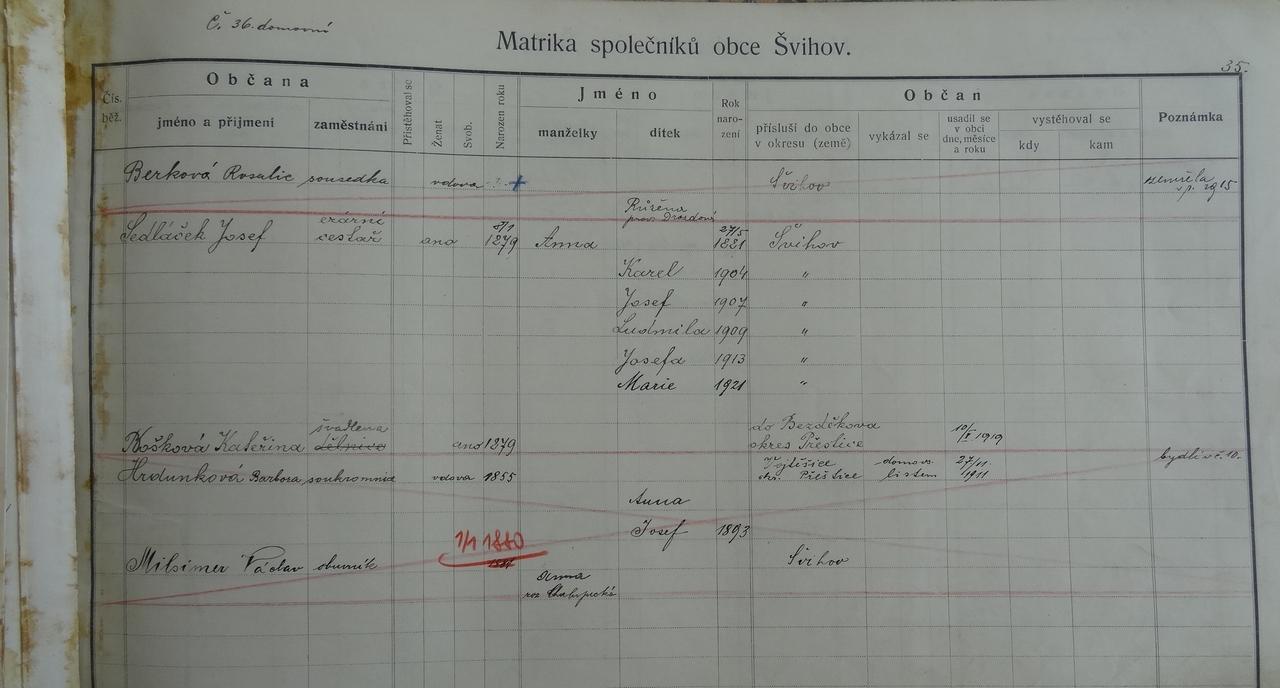 Č. 36. domovní
Matrika společníků obce Švihov.
35.
Čís. běž.
Občana
jméno a příjmení
zaměstnání
Přistěhoval se
Ženat
Svob.
Narozen roku
Jméno
manželky
dítek
Rok naro- zení
Občan
přísluší do obce v okresu (země)
vykázal se
usadil se v obci dne, měsíce a roku
vystěhoval se
kdy
kam
Poznámka
Berková Rosalie sousedka vdova Švihov zemřela 1915
Růžena
prov. Drozdová
erární 8/1 27/5
Sedláček Josef cestář ano 1279 Anna 1881 Švihov
Karel 1904 "
Josef 1907 "
Ludmila 1909 "
Josefa 1913 "
Marie 1921 "
švadlena do Bezděkova 10/I 1919
Košková Kateřina dělnice ano 1879 okres Přeštice
Hrdunková Barbora soukromnice vdova 1855 okr. Přeštice domovs. listem 27/11 1911 bydlí v č. 10.
Anna
Josef 1893
1/1 1880
Milsimer Václav obuvník Švihov
Anna
roz.